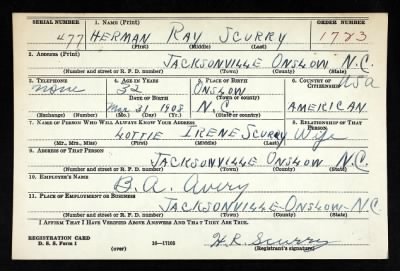 SERIAL NUMBER 1. NAME (Print) ORDER NUMBER
477 HERMAN RAY SCURRY 1723
(First) (Middle) (Last)
2. ADDRESS (Print)
JACKSONVILLE ONSLOW N.C.
(Number and street or R. F. D. number) (Town) (County) (State)
3. TELEPHONE 4. AGE IN YEARS 5. PLACE OF BIRTH 6. COUNTRY OF CITIZENSHIP
none 32 ONSLOW USA
DATE OF BIRTH (Town or county)
Mar 21 1908 N.C. AMERICAN
(Exchange) (Number) (Mo.) (Day) (Yr.) (State or country)
7. NAME OF PERSON WHO WILL ALWAYS KNOW YOUR ADDRESS 8. RELATIONSHIP OF THAT PERSON
LOTTIE IRENE SCURRY Wife
(Mr., Mrs., Miss) (First) (Middle) (Last)
9. ADDRESS OF THAT PERSON
JACKSONVILLE ONSLOW N.C.
(Number and street or R. F. D. number) (Town) (County) (State)
10. EMPLOYER'S NAME
B. A. Avery
11. PLACE OF EMPLOYMENT OR BUSINESS
JACKSONVILLE-ONSLOW-N.C.
(Number and street or R. F. D. number) (Town) (County) (State)
I AFFIRM THAT I HAVE VERIFIED ABOVE ANSWERS AND THAT THEY ARE TRUE.
REGISTRATION CARD
D. S. S. Form 1 (over) 16—17105 H. R. Scurry
Registrant's signature